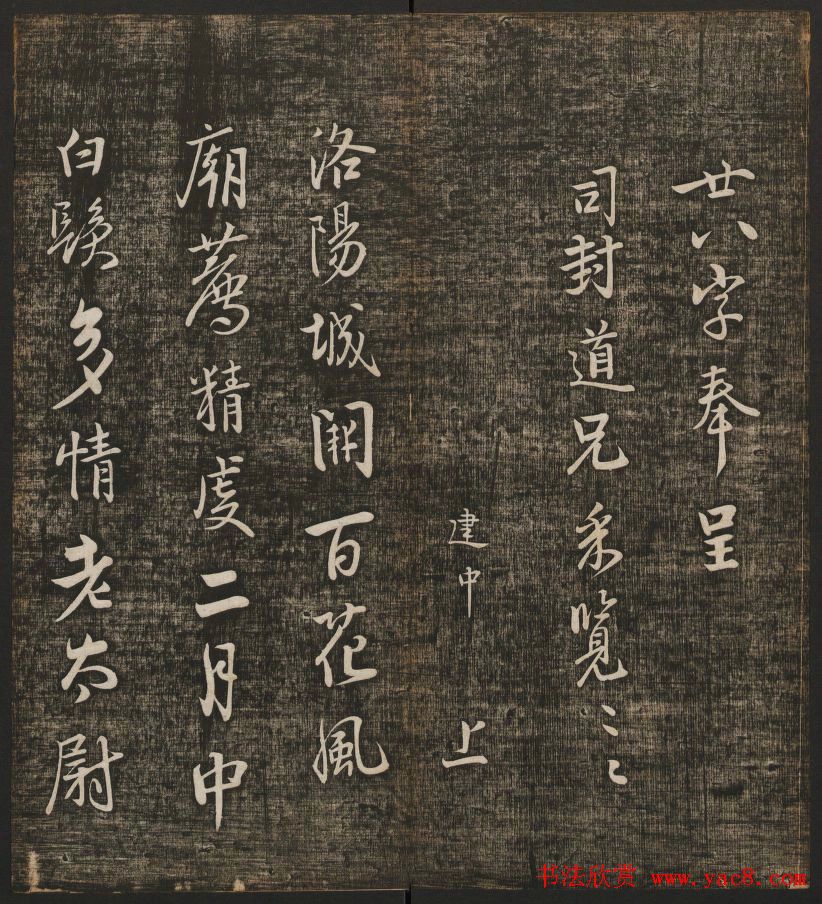 廿八字奉呈
司封道兄采覽〻〻
建中 上
洛陽城開百花風
廟薦精虔二月中
白鬚多情老太尉
书法欣赏 www.yac8.com